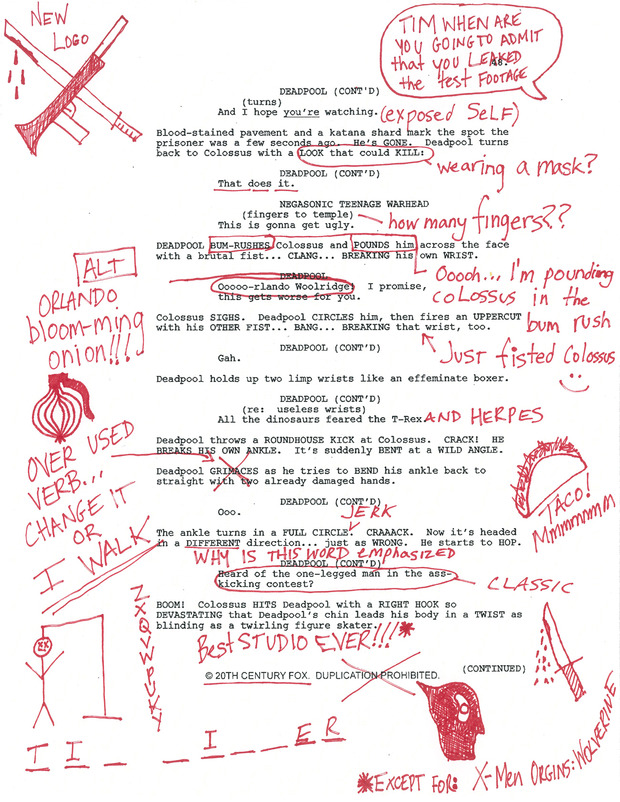 NEW
LOGO
TIM WHEN ARE
YOU GOING TO ADMIT
that you LEAKED
the test FOOTAGE
48.
DEADPOOL (CONT'D)
(turns)
And I hope you're watching. (exposed SELF)
Blood-stained pavement and a katana shard mark the spot the
prisoner was a few seconds ago. He's GONE. Deadpool turns
back to Colossus with a LOOK that could KILL:
wearing a mask?
DEADPOOL (CONT'D)
That does it.
NEGASONIC TEENAGE WARHEAD
(fingers to temple)
how many fingers??
This is gonna get ugly.
DEADPOOL BUM-RUSHES Colossus and POUNDS him across the face
with a brutal fist... CLANG... BREAKING his own WRIST.
Ooooh... I'm pounding
colossus in the
bum rush
DEADPOOL
Oooooo-rlando Woolridge! I promise,
this gets worse for you.
ALT
ORLANDO
bloom-ming
onion!!!
Colossus SIGHS. Deadpool CIRCLES him, then fires an UPPERCUT
with his OTHER FIST... BANG... BREAKING that wrist, too.
Just fisted Colossus
DEADPOOL (CONT'D)
Gah.
Deadpool holds up two limp wrists like an effeminate boxer.
DEADPOOL (CONT'D)
(re: useless wrists)
All the dinosaurs feared the T-Rex AND HERPES
Deadpool throws a ROUNDHOUSE KICK at Colossus. CRACK! HE
BREAKS HIS OWN ANKLE. It's suddenly BENT at a WILD ANGLE.
OVER USED
VERB...
CHANGE IT
OR
I WALK
Deadpool GRIMACES as he tries to BEND his ankle back to
straight with two already damaged hands.
TACO!
Mmmmmmm
DEADPOOL (CONT'D)
Ooo.
JERK
The ankle turns in a FULL CIRCLE. CRAAACK. Now it's headed
in a DIFFERENT direction... just as WRONG. He starts to HOP.
WHY IS THIS WORD emphasized
DEADPOOL (CONT'D)
Heard of the one-legged man in the ass-
kicking contest?
CLASSIC
BOOM! Colossus HITS Deadpool with a RIGHT HOOK so
DEVASTATING that Deadpool's chin leads his body in a TWIST as
blinding as a twirling figure skater.
Best STUDIO EVER!!!*
(CONTINUED)
© 20TH CENTURY FOX. DUPLICATION PROHIBITED.
Z
X
Q
V
W
P
U
K
Y
T I _ _ I _ _ E R
*EXCEPT FOR: X-Men ORGINS: WOLVERINE